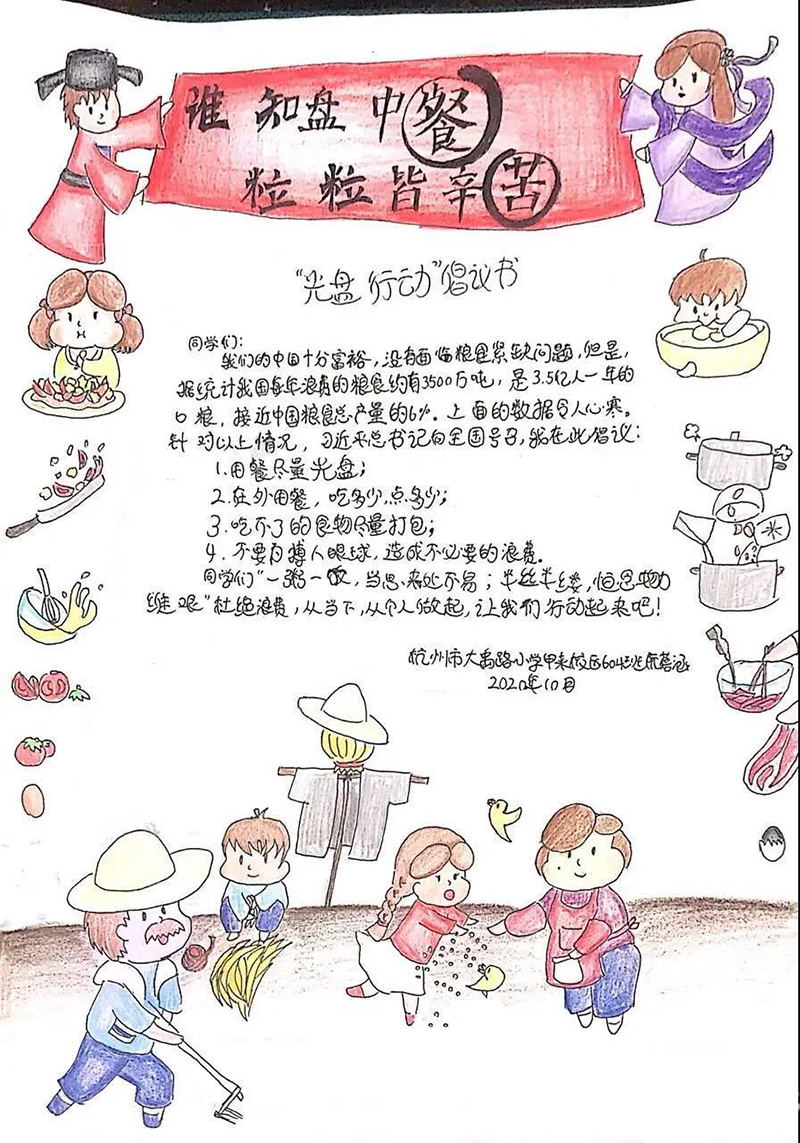 谁知盘中餐
粒粒皆辛苦
“光盘行动”倡议书
同学们:
我们的中国十分富裕,没有面临粮食紧缺问题,但是,
据统计我国每年浪费的粮食约有3500万吨,是3.5亿人一年的
口粮,接近中国粮食总产量的6%。上面的数据令人心寒。
针对以上情况,习近平总书记向全国号召,我在此倡议:
1.用餐尽量光盘;
2.在外用餐,吃多少,点多少;
3.吃不了的食物尽量打包;
4.不要为搏人眼球,造成不必要的浪费。
同学们“一粥一饭,当思来处不易;半丝半缕,恒念物力
维艰”杜绝浪费,从当下,从个人做起,让我们行动起来吧!
杭州市大禹路小学甲来校区604班
2020年10月